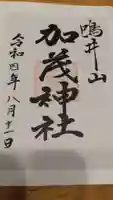 鴨井山
加茂神社
令和四年八月十一日